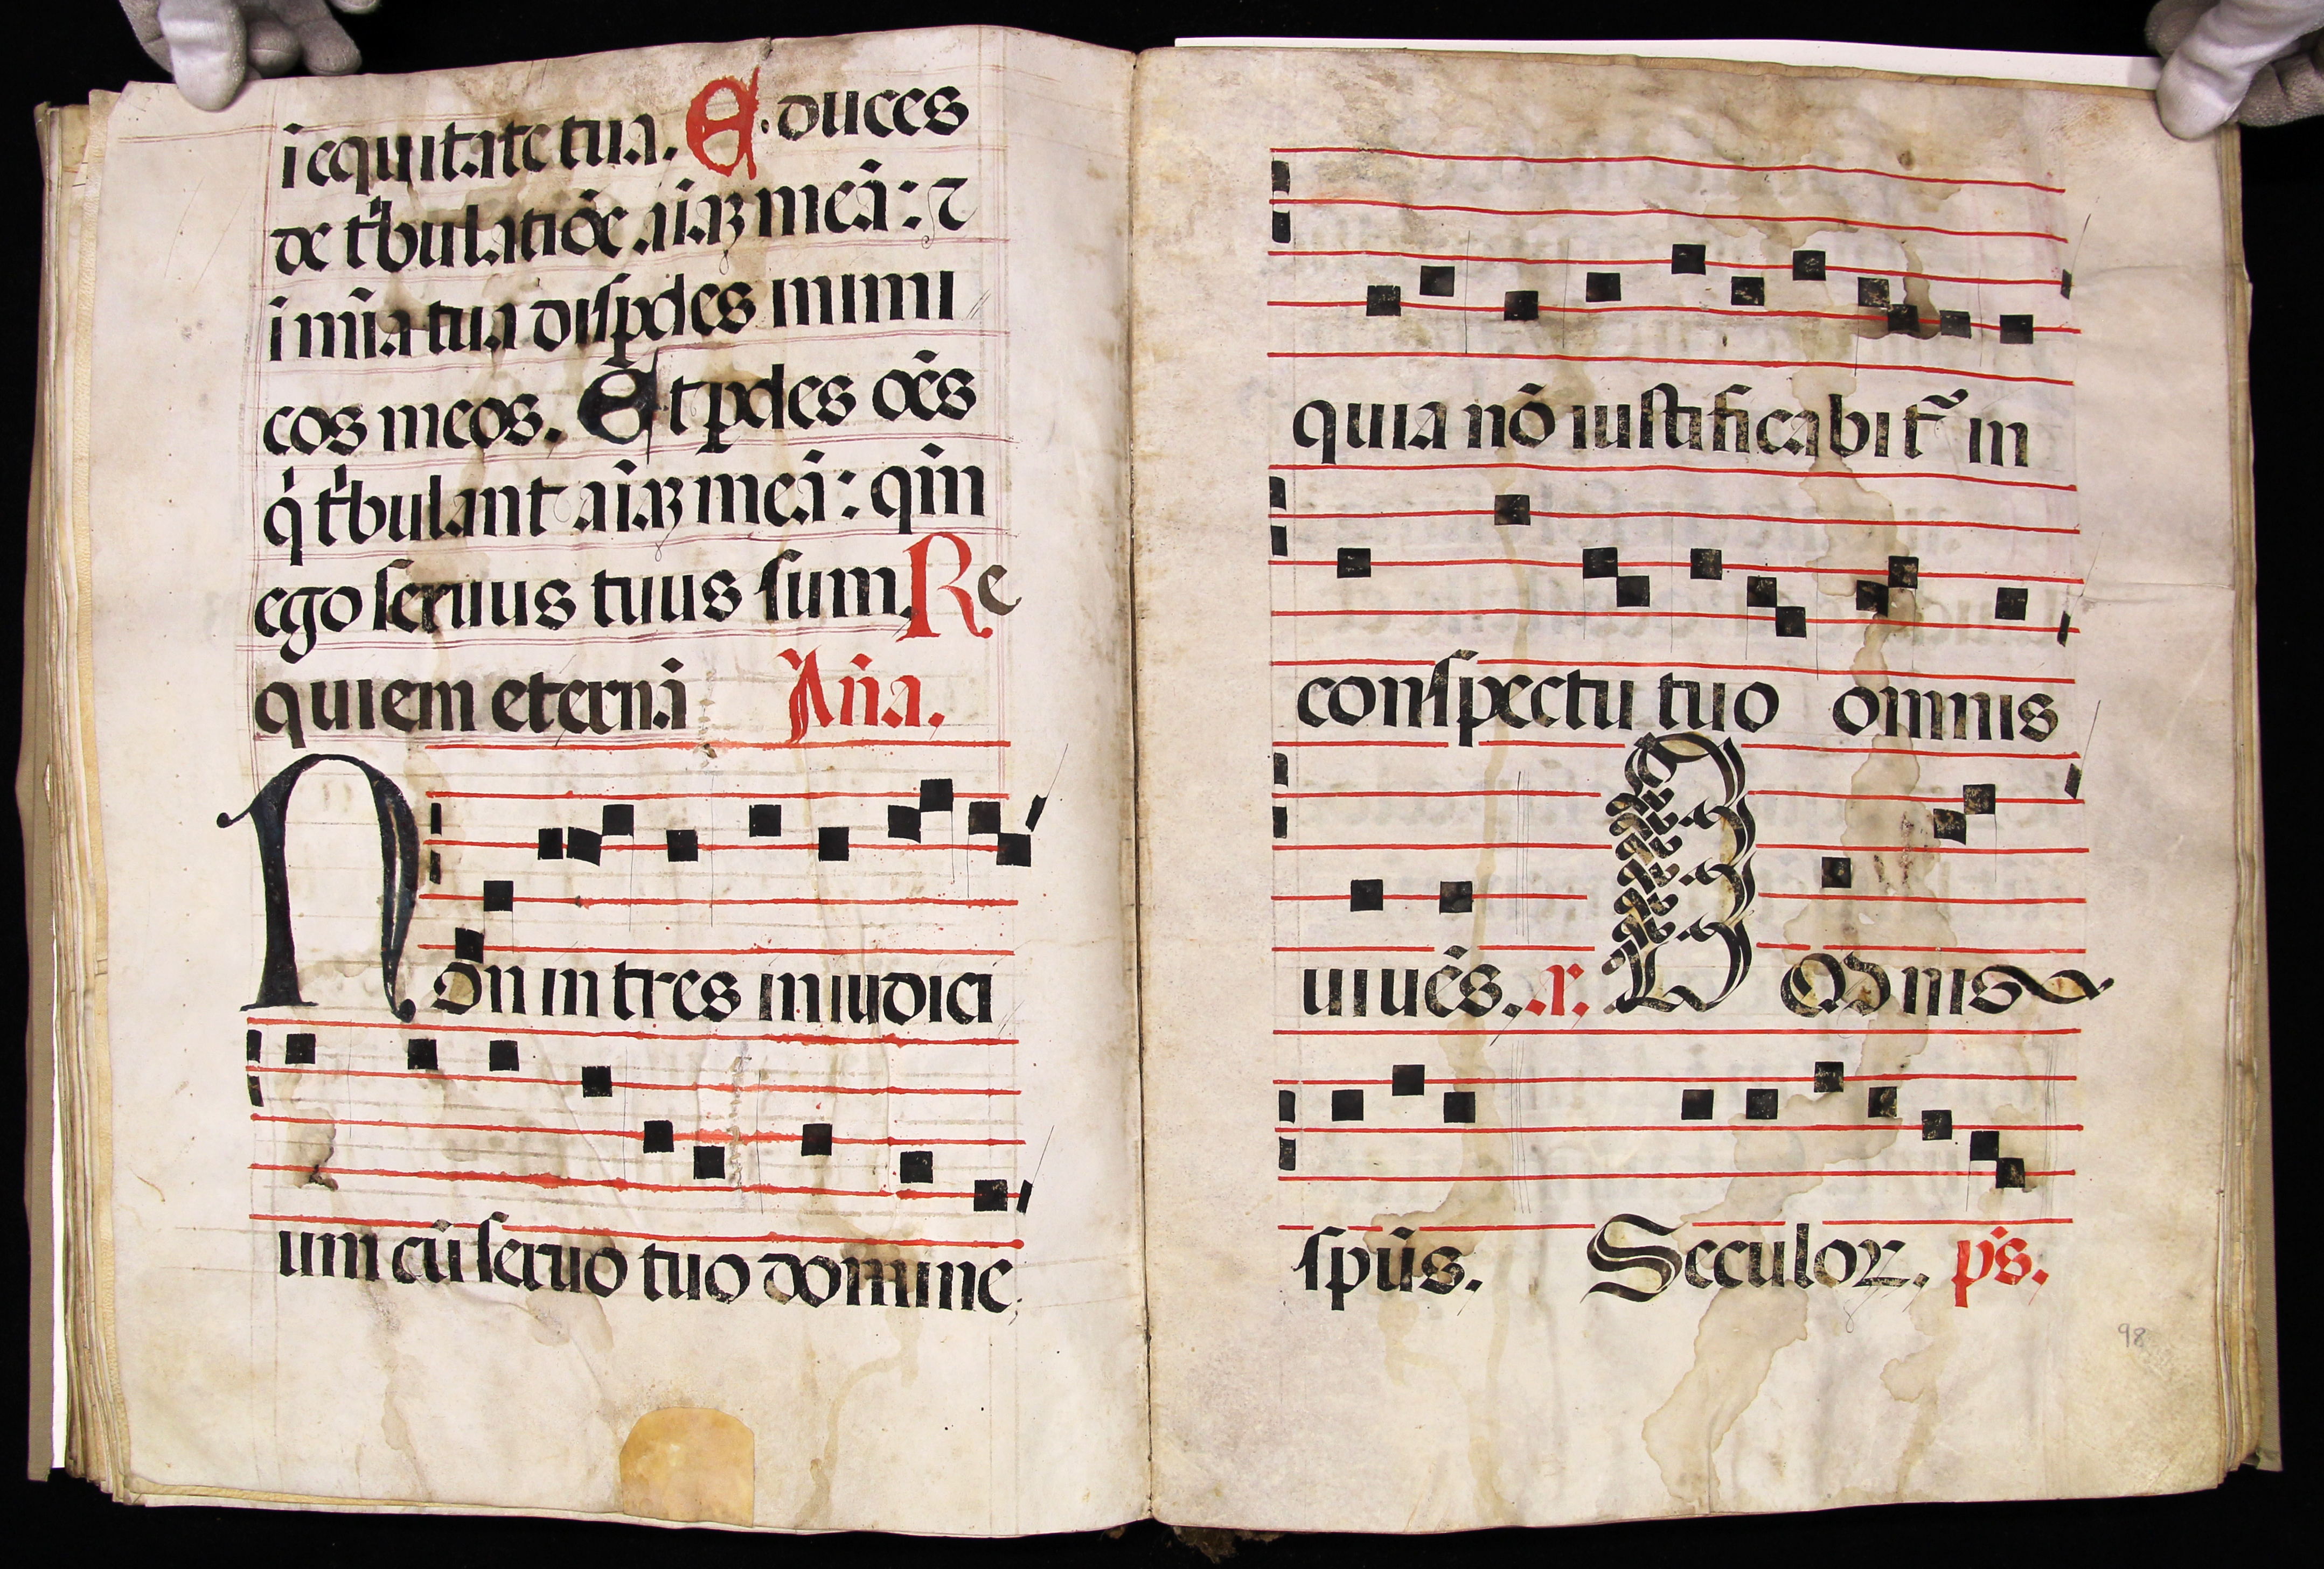 ī equitate tua. E·duces
de tͥbulatiōe aīaꝫ meā: ⁊
ī mīa tua diſpdes inimi
cos meos. Et pdes oēs
qͥ tͥbulant aīaꝫ meā: qm̄
ego seruus tuus sum. Re
quiem eternā Añа.
Non intres in iudici
um cū seruo tuo domine
quia nō iustificabit̃ in
conspectu tuo omnis
uiuēs. .r. Omnis
spūs. Seculoꝝ. p̄s.
98